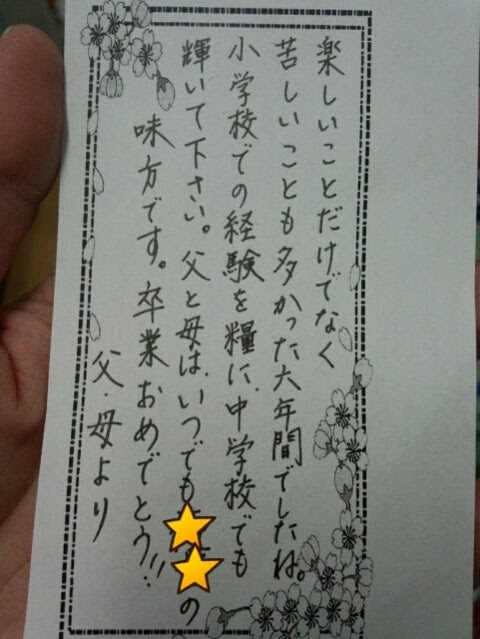 楽しいことだけでなく
苦しいことも多かった六年間でしたね。
小学校での経験を糧に、中学校でも
輝いて下さい。父と母は、いつでも の
味方です。卒業おめでとう!!
父・母より